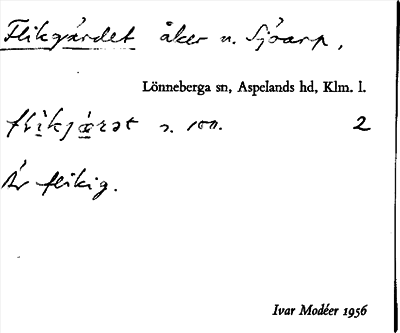 Flikgärdet åker n. Sjöarp,
Lönneberga sn, Aspelands hd, Klm. l.
s. 100. 2
Är flikig.
Ivar Modéer 1956